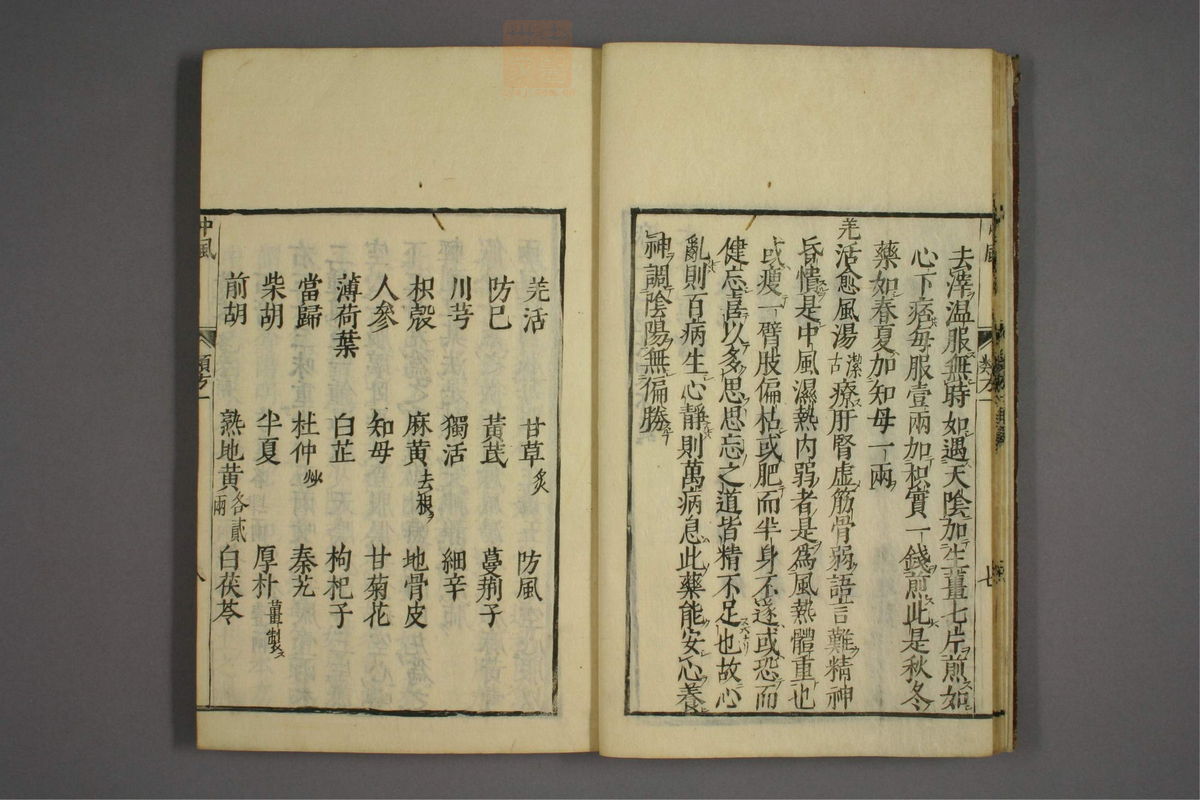 去滓温服無時如遇天陰加生薑七片煎如
心下痞毎服壹兩加枳實一錢煎此是秋冬
藥如春夏加知母一兩
羌活愈風湯潔古療肝腎虚筋骨弱語言難精神
昏憒是中風濕熱内弱者是為風熱體重也
或瘦一臂肢偏枯或肥而半身不遂或恐而
健忘喜以多思思忘之道皆精不足也故心
亂則百病生心靜則萬病息此藥能安心養
神調陰陽無偏勝
七
羌活 甘草炙 防風
防已 黃芪 蔓荆子
川芎 獨活 細辛
枳殼 麻黃去根 地骨皮
人參 知母 甘菊花
薄荷葉 白芷 枸杞子
當歸 杜仲炒 秦艽
柴胡 半夏 厚朴薑製
前胡 熟地黃各貳兩 白茯苓
中風
八